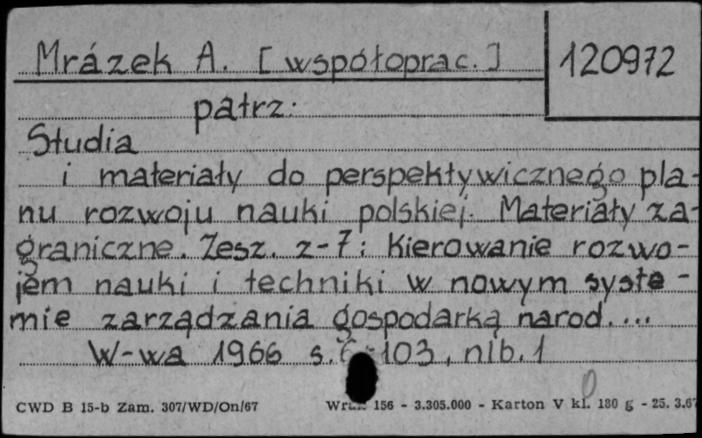 Mrázek A. [współoprac.] 120972
patrz:
Studia
i materiały do perspektywicznego pla-
nu rozwoju nauki polskiej. Materiały za-
graniczne. Zesz. z-7: Kierowanie rozwo-
jem nauki i techniki w nowym syste-
mie zarządzania gospodarką narod....
W-wa 1966 s. 103, nlb. 1
CWD B 15-b Zam. 307/WD/On/67 156 - 3.305.000 - Karton V kl. 180 g - 25. 3.67